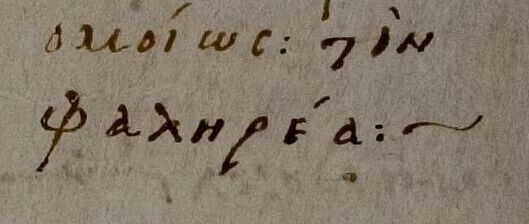 ὁμοίως: τὸν
φαληρέα:~